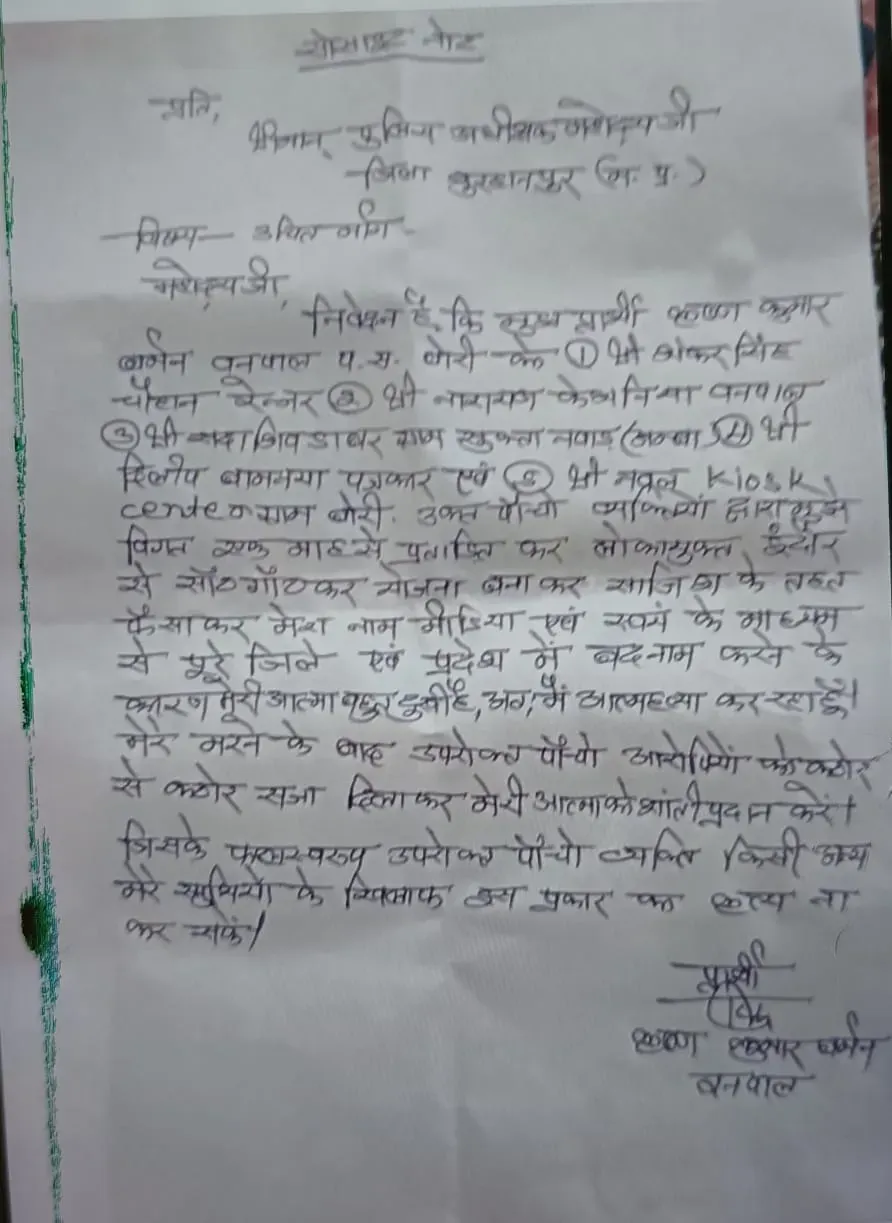 सोसाइट नोट
प्रति,
श्रीमान् पुलिस अधीक्षक महोदय जी
जिला बुरहानपुर (म. प्र.)
विषय- उचित माँग
महोदय जी,
निवेदन है, कि मुझ प्रार्थी कृष्ण कुमार
बर्मन वनपाल प. स. बोरी के ① श्री शंकर सिंह
चौहान रेन्जर ② श्री नारायण वनपाल
③ श्री सदाशिव डाबर ग्राम ④ श्री
दिलीप बामनया पत्रकार एवं ⑤ श्री नवल Kiosk
center ग्राम बोरी. उक्त पाँचो व्यक्तियों द्वारा मुझे
विगत एक माह से प्रताडित कर लोकायुक्त इंदौर
से साँठगाँठ कर योजना बना कर साजिश के तहत
फँसाकर मेरा नाम मीडिया एवं स्वयं के माध्यम
से पूरे जिले एवं प्रदेश में बदनाम करने के
कारण मेरी आत्मा बहुत दुखी है, अतः मैं आत्महत्या कर रहा हूँ।
मेरे मरने के बाद उपरोक्त पाँचो आरोपियों को कठोर
से कठोर सजा दिलाकर मेरी आत्मा को शांती प्रदान करें।
जिसके फलस्वरुप उपरोक्त पाँचो व्यक्ति किसी अन्य
मेरे साथियो के खिलाफ इस प्रकार का कृत्य ना
कर सकें।
प्रार्थी
कृष्ण कुमार बर्मन
वनपाल